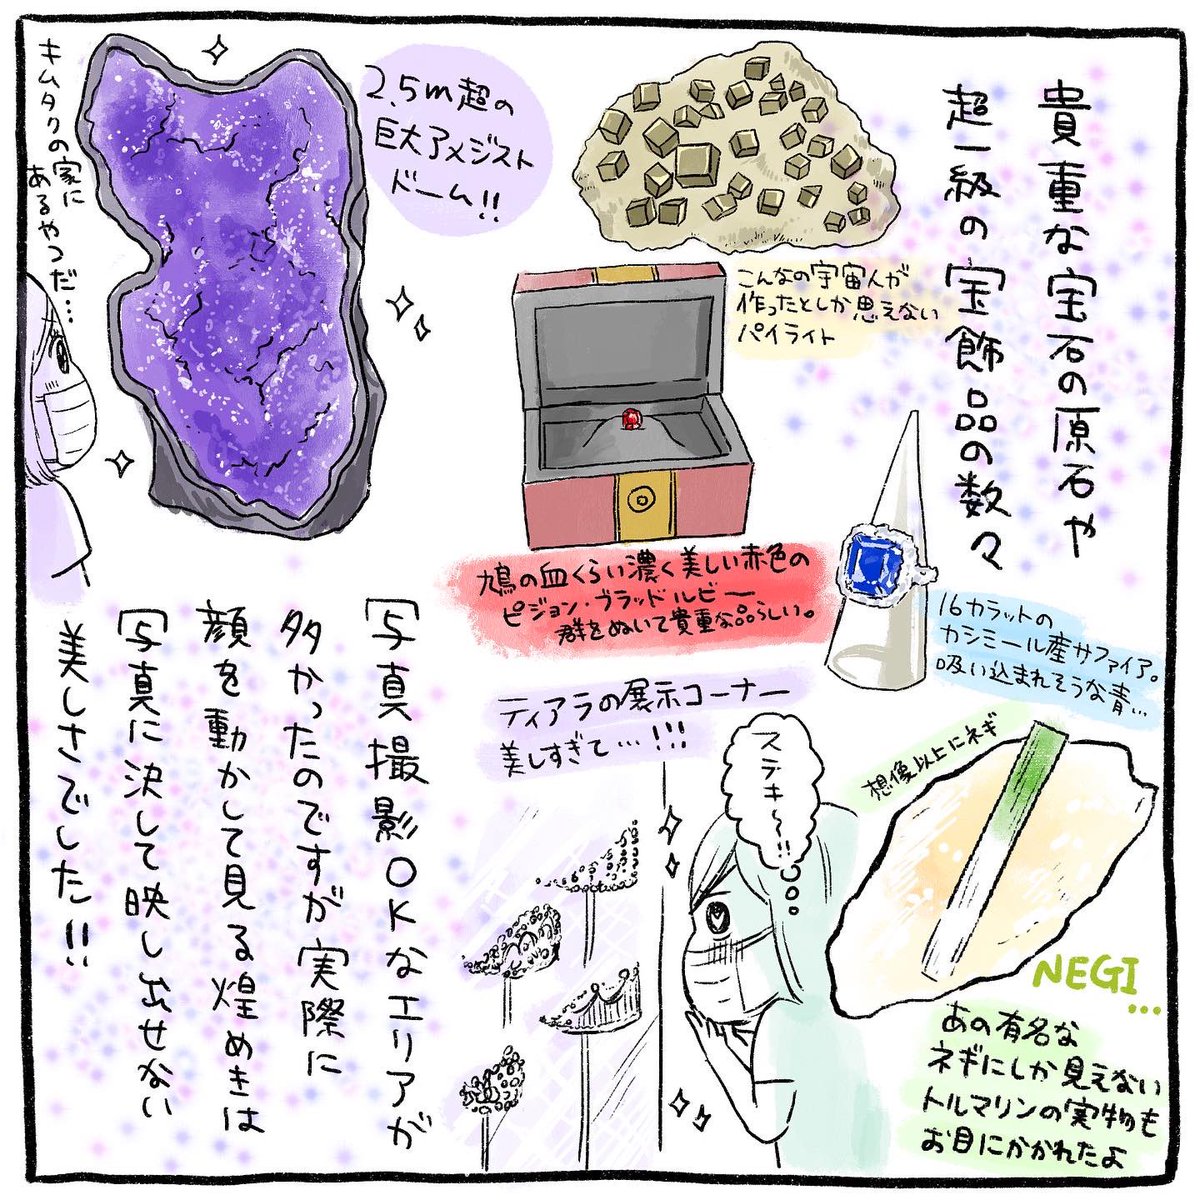 貴重な宝石の原石や
超一級の宝飾品の数々
こんなの宇宙人が
作ったとしか思えない
パイライト
2.5m超の
巨大アメジスト
ドーム!!
キムタクの家に
あるやつだ…
鳩の血くらい濃く美しい赤色の
ピジョン・ブラッドルビー
群をぬいて貴重な品らしい。
16カラットの
カシミール産サファイア。
吸い込まれそうな青…
ティアラの展示コーナー
美しすぎて…!!!
ステキ〜!!
想像以上にネギ
NEGI…
あの有名な
ネギにしか見えない
トルマリンの実物も
お目にかかれたよ
写真撮影OKなエリアが
多かったのですが実際に
顔を動かして見る煌めきは
写真に決して映し出せない
美しさでした!!